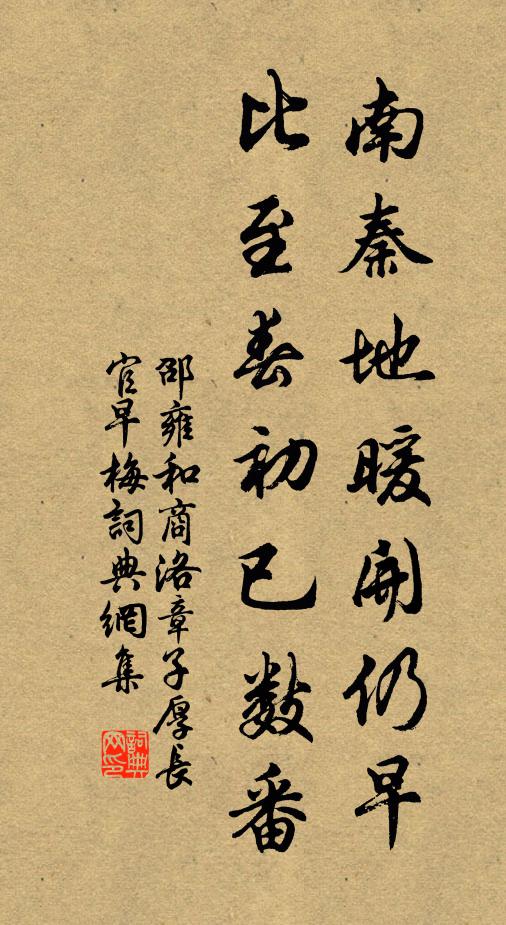 南秦地暖開仍早
比至春初已數番
邵雍和商洛章子厚長
官早梅詞典網集
詞典網印